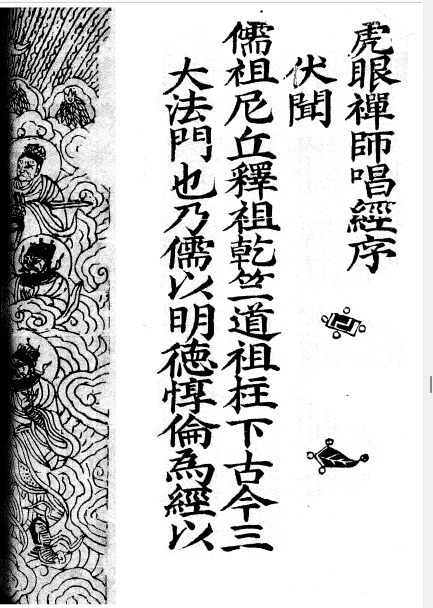 虎眼禪師唱經序
伏聞
儒祖尼丘釋祖乾竺道祖柱下古今三
大法門也乃儒以明德惇倫為經以